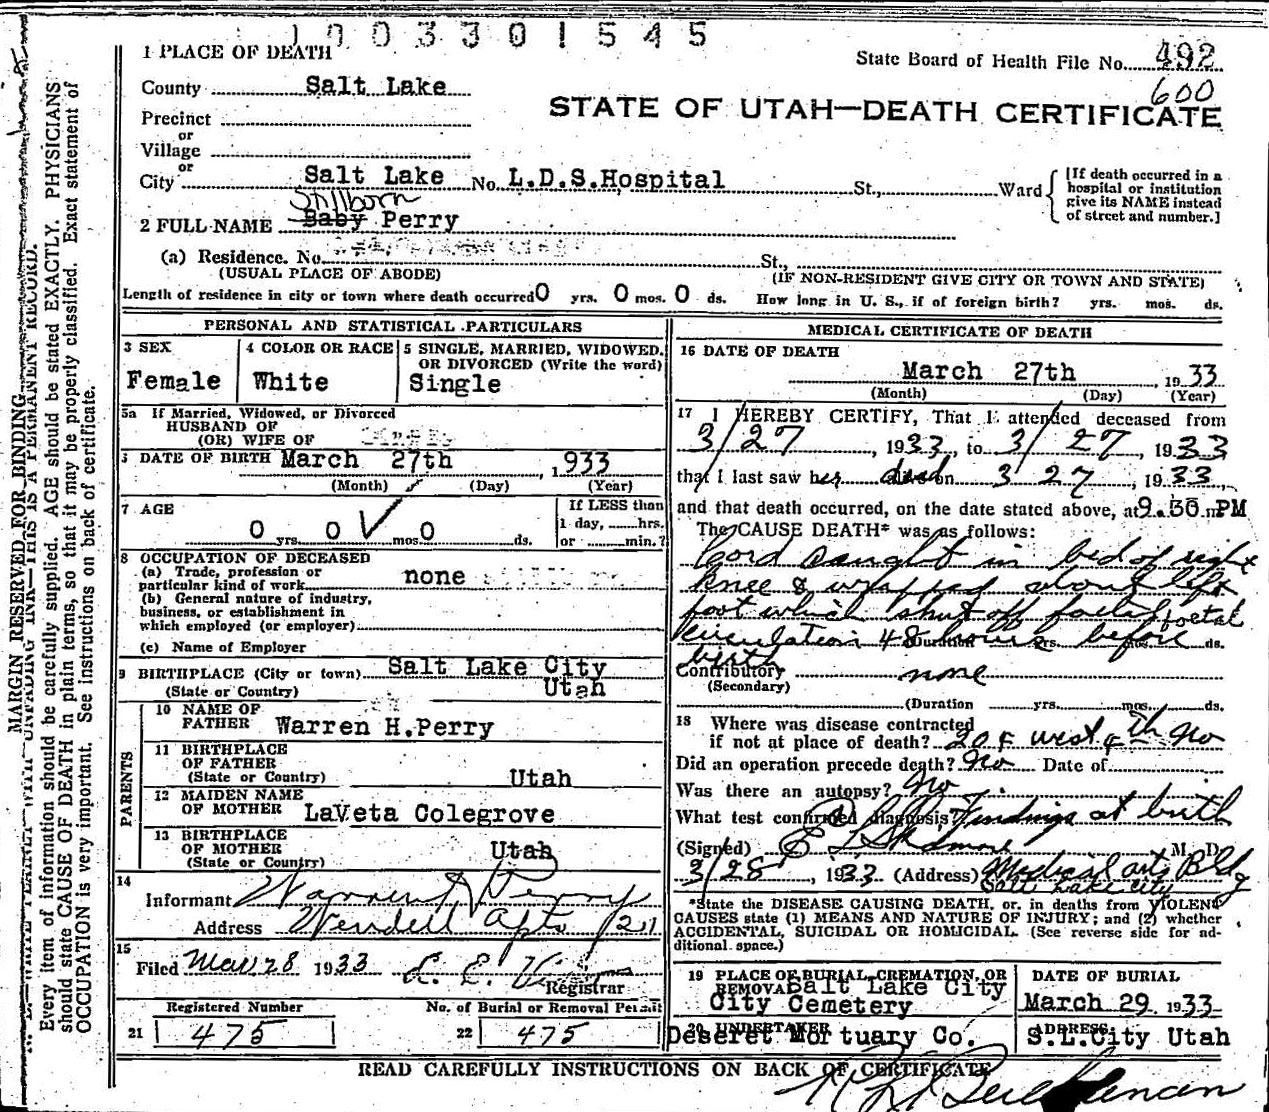 1 0 0 3 3 0 1 5 4 5
1 PLACE OF DEATH
State Board of Health File No. 492
600
County Salt Lake
STATE OF UTAH—DEATH CERTIFICATE
Precinct
or
Village
or
City Salt Lake No. L.D.S.Hospital St., Ward
[If death occurred in a hospital or institution give its NAME instead of street and number.]
Stillborn
2 FULL NAME Baby Perry
(a) Residence. No. St.,
(USUAL PLACE OF ABODE) (IF NON-RESIDENT GIVE CITY OR TOWN AND STATE)
Length of residence in city or town where death occurred 0 yrs. 0 mos. 0 ds. How long in U. S., if of foreign birth? yrs. mos. ds.
PERSONAL AND STATISTICAL PARTICULARS
3 SEX
Female
4 COLOR OR RACE
White
5 SINGLE, MARRIED, WIDOWED,
OR DIVORCED (Write the word)
Single
5a If Married, Widowed, or Divorced
HUSBAND OF
(OR) WIFE OF
DATE OF BIRTH March 27th, 1933
(Month) (Day) (Year)
7 AGE
0 yrs. 0 mos. 0 ds.
If LESS than
1 day, hrs.
or min.?
8 OCCUPATION OF DECEASED
(a) Trade, profession or
particular kind of work none
(b) General nature of industry,
business, or establishment in
which employed (or employer)
(c) Name of Employer
9 BIRTHPLACE (City or town) Salt Lake City
(State or Country) Utah
PARENTS
10 NAME OF
FATHER Warren H.Perry
11 BIRTHPLACE
OF FATHER
(State or Country) Utah
12 MAIDEN NAME
OF MOTHER LaVeta Colegrove
13 BIRTHPLACE
OF MOTHER
(State or Country) Utah
14
Informant Warren H Perry
Address Wendell Apts 121
15
Filed Mar 28 1933
Registrar
Registered Number
21 475
No. of Burial or Removal Permit
22 475
MEDICAL CERTIFICATE OF DEATH
16 DATE OF DEATH
March 27th, 1933
(Month) (Day) (Year)
17 I HEREBY CERTIFY, That I attended deceased from
3/27, 1933, to 3/27, 1933
that I last saw her dead on 3 27, 1933,
and that death occurred, on the date stated above, at 9.30 m PM
The CAUSE DEATH* was as follows:
Cord caught in bed of right
knee & wrapped about left
foot which shut off foetal foetal
circulation 48 hours before
birth
(Duration yrs. mos. ds.
Contributory none
(Secondary)
(Duration yrs. mos. ds.
18 Where was disease contracted
if not at place of death? 204 west 4th No
Did an operation precede death? No Date of
Was there an autopsy? No
What test confirmed diagnosis? Findings at birth
(Signed) E L Skidmore M. D.
3/28, 1933 (Address) Medical arts Bldg
Salt Lake City
*State the DISEASE CAUSING DEATH, or, in deaths from VIOLENT
CAUSES state (1) MEANS AND NATURE OF INJURY; and (2) whether
ACCIDENTAL, SUICIDAL OR HOMICIDAL. (See reverse side for ad-
ditional space.)
19 PLACE OF BURIAL, CREMATION, OR
REMOVAL Salt Lake City
City Cemetery
DATE OF BURIAL
March 29 1933
20 UNDERTAKER
Deseret Mortuary Co.
ADDRESS
S.L.City Utah
READ CAREFULLY INSTRUCTIONS ON BACK OF CERTIFICATE
MARGIN RESERVED FOR BINDING
THIS IS A PERMANENT RECORD.
Every item of information should be carefully supplied. AGE should be stated EXACTLY. PHYSICIANS
should state CAUSE OF DEATH in plain terms, so that it may be properly classified. Exact statement of
OCCUPATION is very important. See instructions on back of certificate.